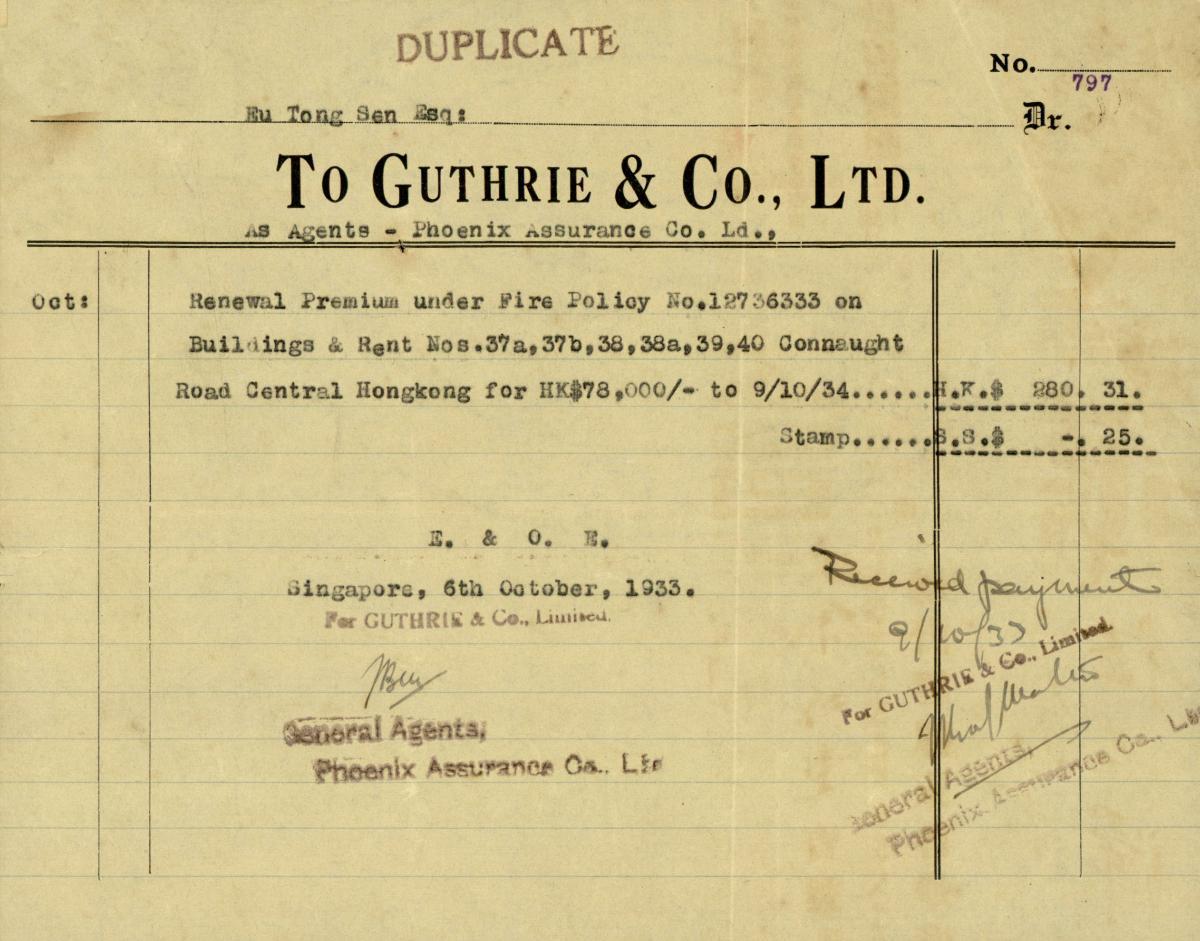 DUPLICATE
No. 797
Eu Tong Sen Esq: Dr.
To Guthrie & Co., Ltd.
As Agents - Phoenix Assurance Co. Ld.,
Oct: Renewal Premium under Fire Policy No.12736333 on
Buildings & Rent Nos.37a,37b,38,38a,39,40 Connaught
Road Central Hongkong for HK$78,000/- to 9/10/34......H.K.$ 280. 31.
Stamp......S.S.$ -. 25.
E. & O. E.
Singapore, 6th October, 1933.
For GUTHRIE & Co., Limited.
General Agents,
Phoenix Assurance Co., Ltd
Received payment
9/10/33
For GUTHRIE & Co., Limited.
General Agents,
Phoenix Assurance Co., Ltd